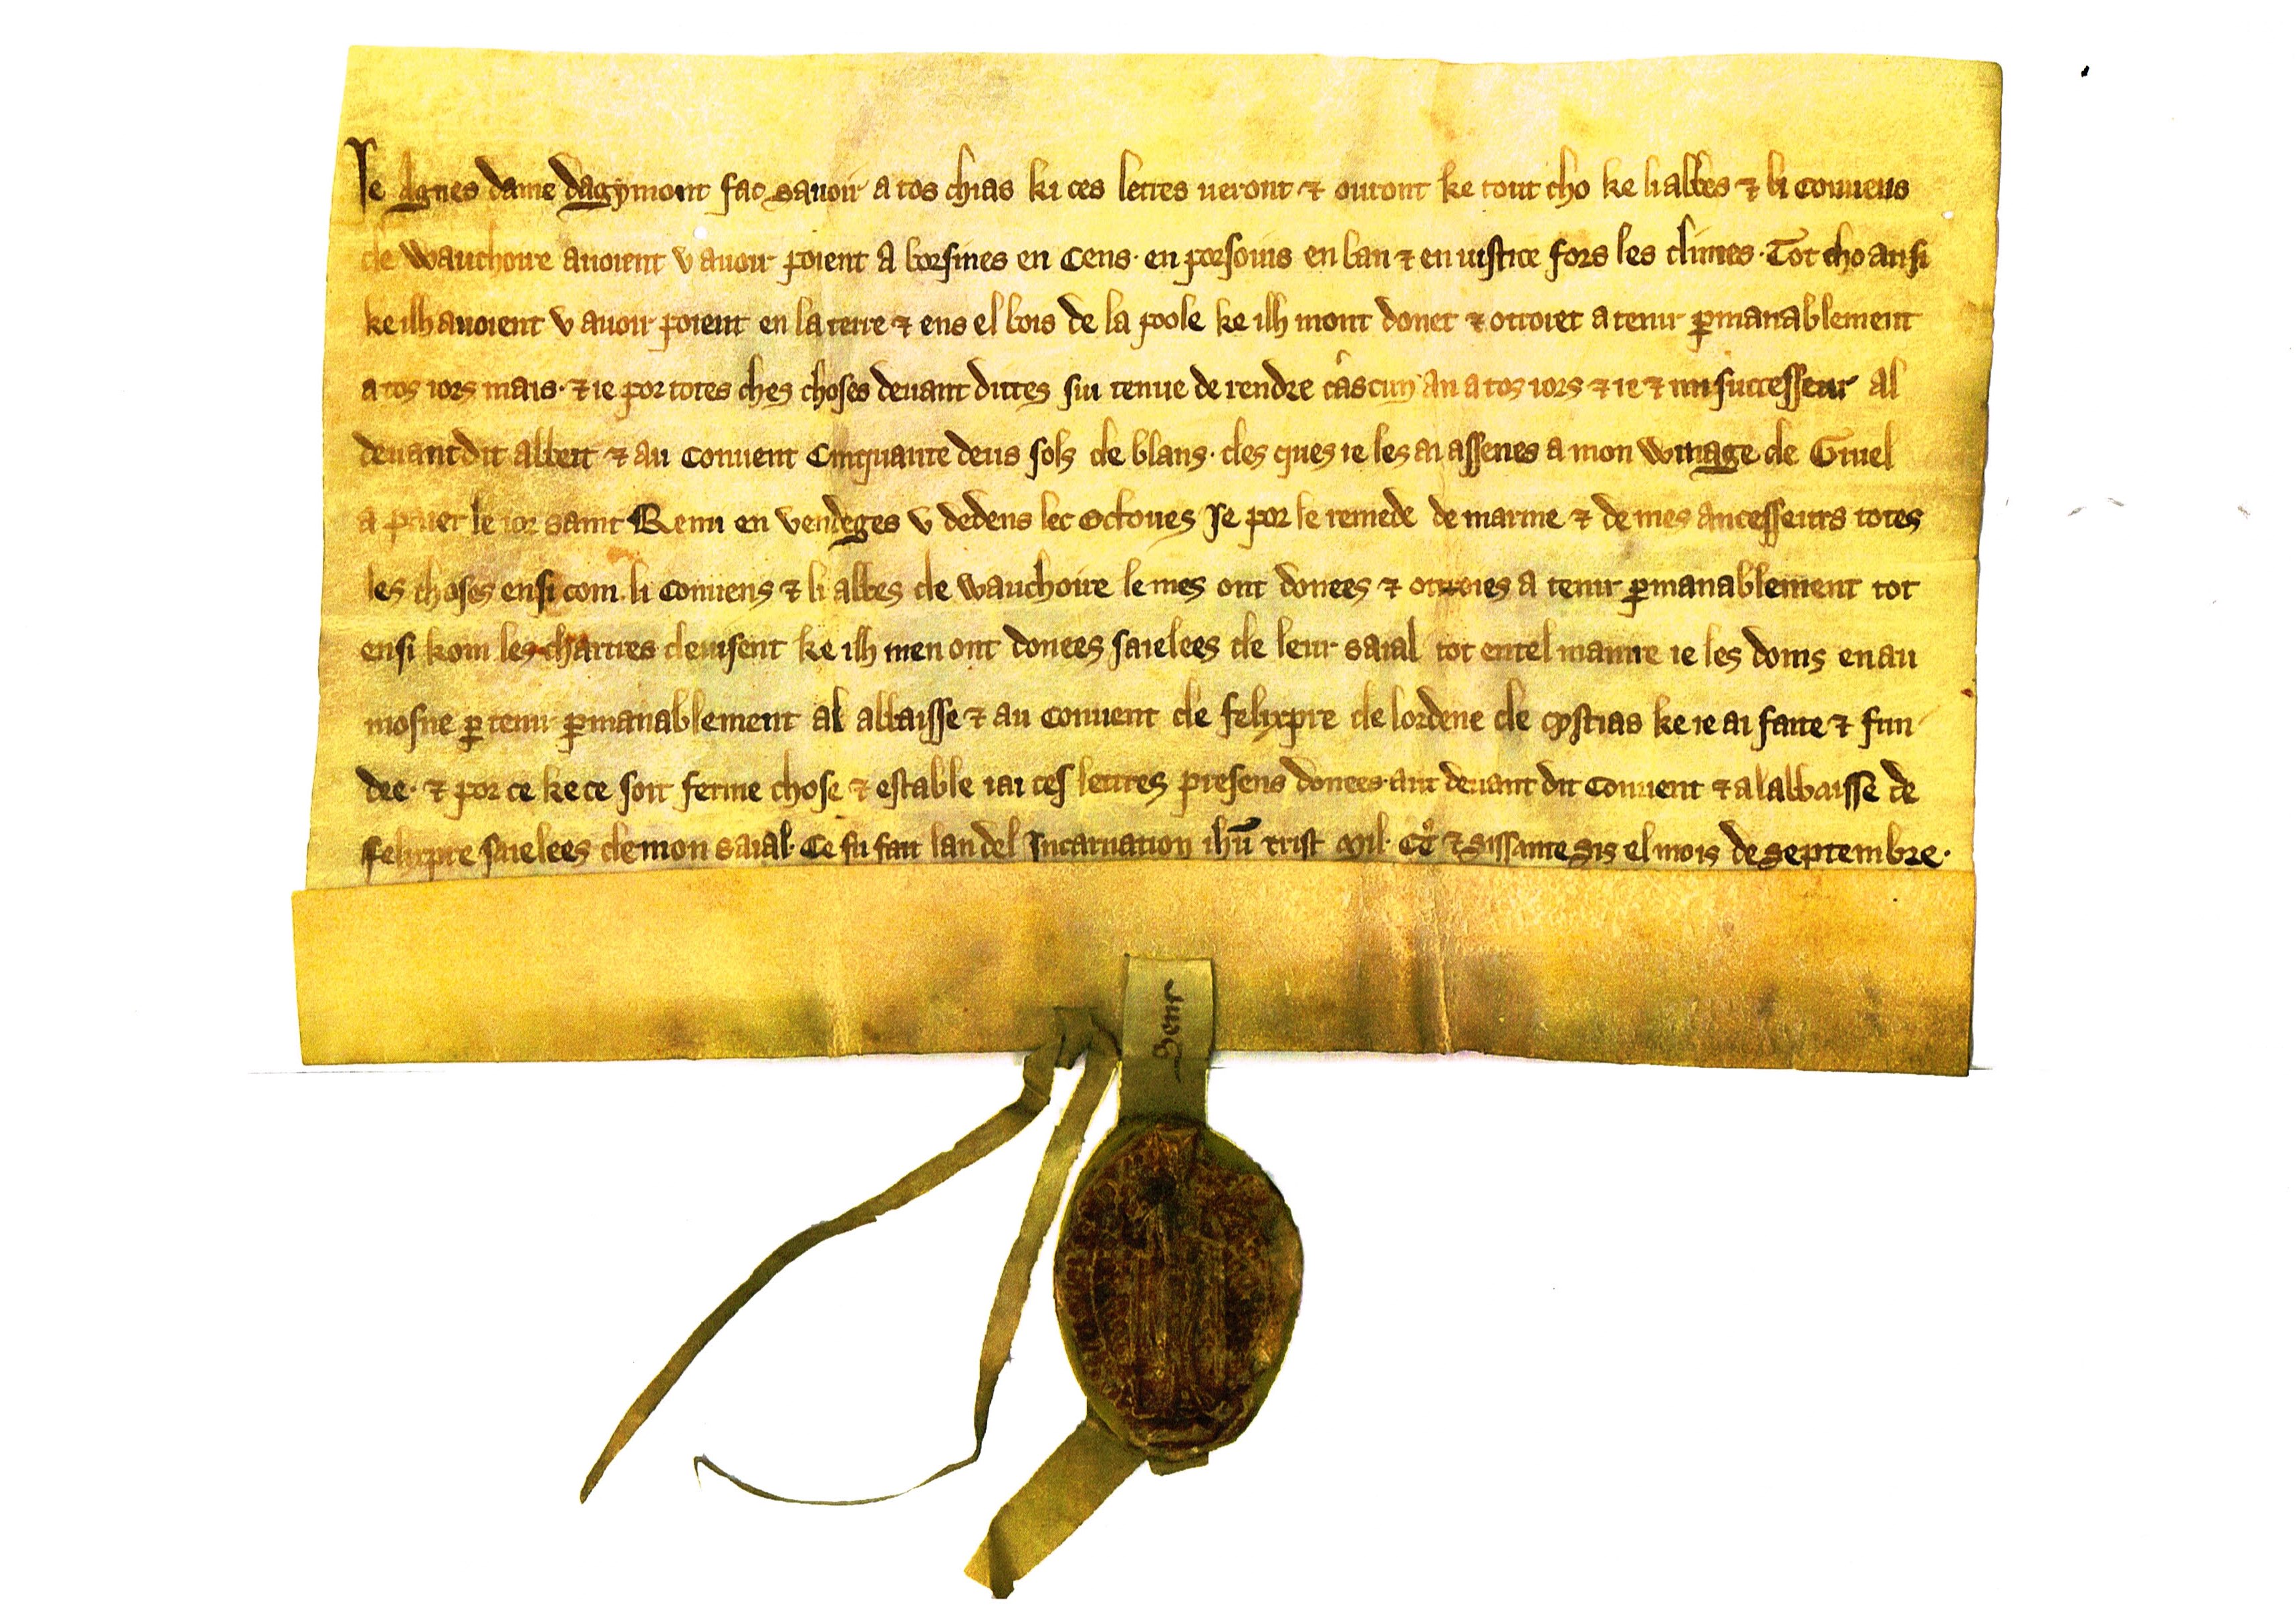 Je Agnes dame dagymont fac savoir a tos chias ki ces lettres veront ⁊ oiront ke tout cho ke li abbes ⁊ li convens
de wauchoire avoient v avoir poient a borsines en cens· en porsoins en ban ⁊ en iustice fors les dimes· Tot cho ausi
ke ilh avoient v avoir poient en la terre ⁊ ens el bois de la poole ke ilh mont donet ⁊ ottoiet a tenir p̱manablement
a tos iors mais· ⁊ ie por totes ches choses devant dittes sui tenue de rendre cascun an a tos iors ⁊ ie ⁊ mi successeur al
devant dit abbeit ⁊ au convent Cinquante deus sols de blans· des ques ie les ai assenes a mon winage de Givel
a paier le ior saint Remi en vendeges v dedens lec octoves Je por le remede de marme ⁊ de mes ancesseurs totes
les choses ensi com li convens ⁊ li abbes de wauchoire le mes ont donees ⁊ ottroies a tenir p̱manablement tot
ensi kom les chartres devisent ke ilh men ont donees saielees de leur saial tot entel manire ie les donis en au
mosne p̱ tenir p̱manablement al abbaisse ⁊ au convent de felixpre de lordene de cystias ke ie ai faite ⁊ fun
dee· ⁊ por ce ke ce soit ferme chose ⁊ estable iai ces lettres presens donees aut devant dit convent ⁊ al abbaisse de
felixpre saielees de mon saial· Ce fu fait lan del Incarnation ihū crist mil· CC° ⁊ sissante sis el mois de septembre·